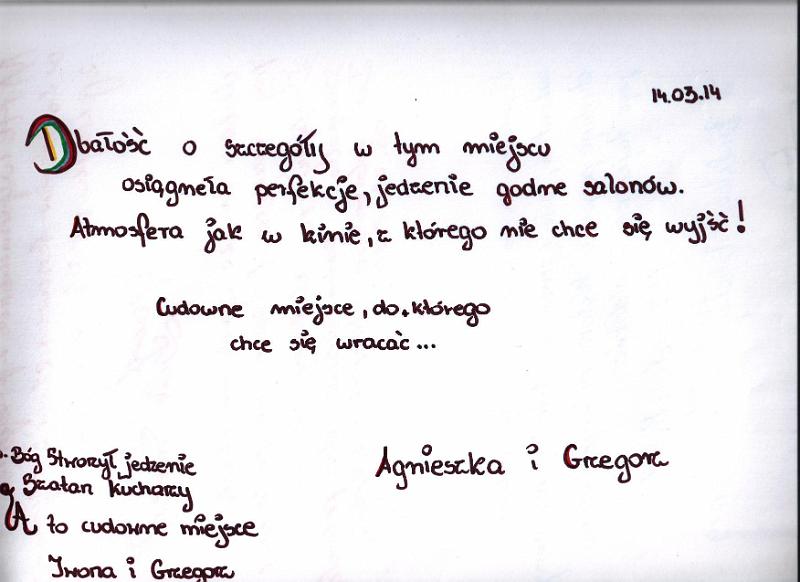 14.03.14
Dbałość o szczegóły w tym miejscu
osiągneła perfekcje, jedzenie godne salonów.
Atmosfera jak w kinie, z którego nie chce się wyjść!
Cudowne miejsce, do którego
chce się wracać...
Agnieszka i Grzegorz
Bóg Stworzył jedzenie
Szatan Kucharzy
A to cudowne miejsce
Iwona i Grzegorz